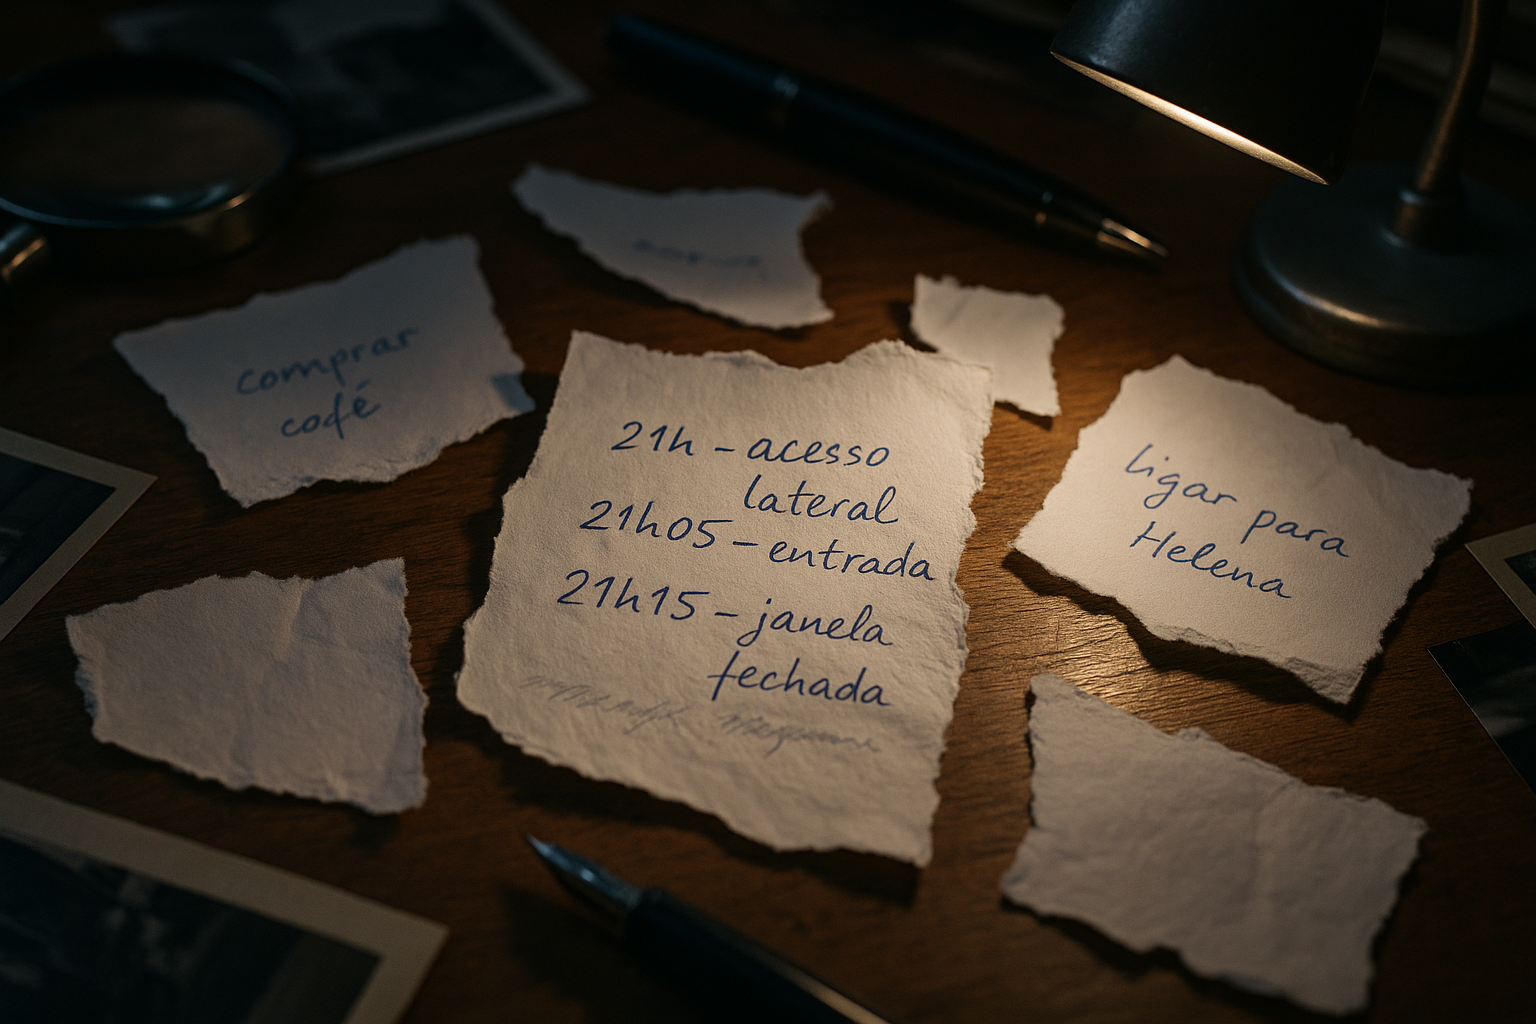 comprar
café
21h – acesso
lateral
21h05 – entrada
21h15 – janela
fechada
ligar para
Helena